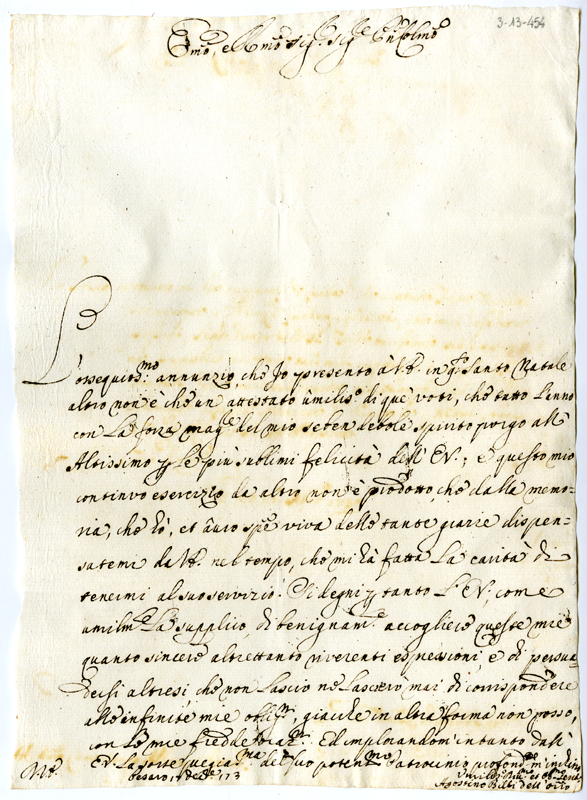 3-13-454
Emo, e Rmo Sig.r Sig.e Pron Colmo
L'ossequios.mo annunzio che Jo presento à V.E. in q.to Santo Natale
altro non è che un attestato umilis.o di que voti, che tutto l'anno
con la forza mag.re del mio seben debole spirito porgo all'
Altissimo p le più sublimi felicità dell' E.V.; e questo mio
continuo esercizio da altro non è prodotto, che dalla memo-
ria, che hò, et aurò sp.e viva delle tante grazie dispen-
satemi da V.E. nel tempo, che mi hà fatta la carità di
tenermi al suo servizio. Si degni p tanto l'E.V., come
umilm.e la supplico, di benignam.e accogliere queste mie
quanto sincere altrettanto riverenti espressioni e di persua-
dersi altresi, che non lascio ne lascierò mai di corrispondere
alle infinite mie obblig.ni, giacche in altra forma non posso,
con le mie fredde oraz.ni. Ed implorandom' intanto dall'
E.V. la sorte pregiat.ma del suo potent.mo Patrocinio profond.m m'inchino
Pesaro, Xbre
Agostino dell' Orto